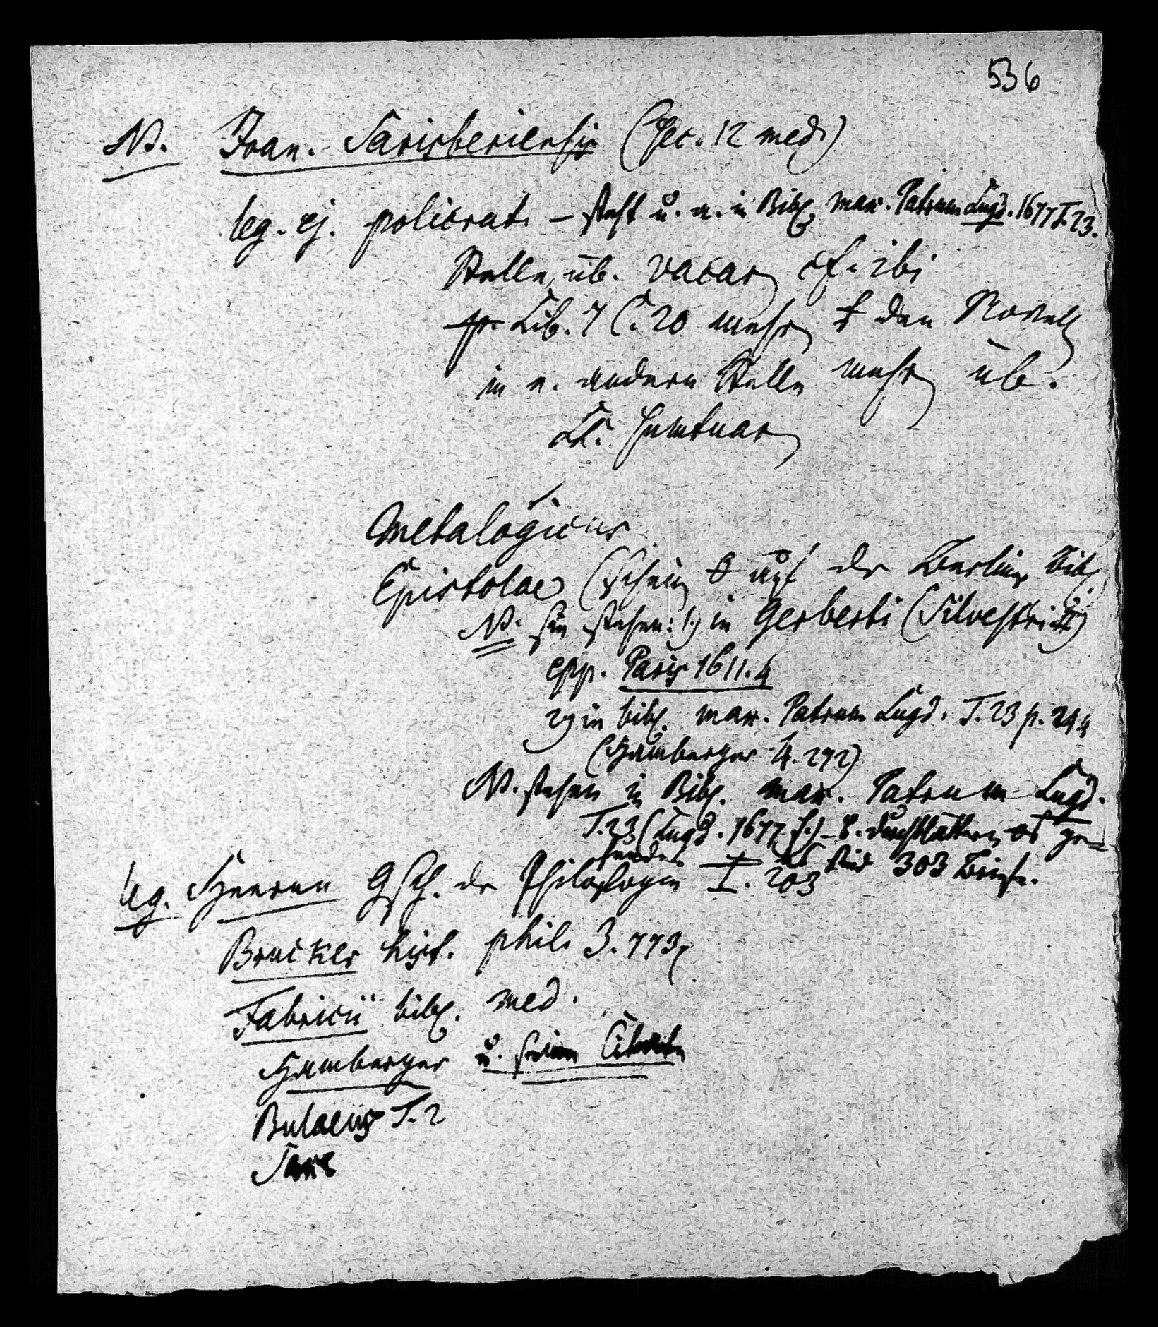 536
NB. Joan. Sarisberiensis (Sec. 12 med.)
leg. ej. policrat. – steht u. a. in Bibl. max. Patrum Lugd. 1677 T. 23.
Stelle üb. Vacar cf. ibi
Lib. 7 C. 20 mehr den Novell
in e. andern Stelle mehr üb.
Metalogicus
Epistolae (schein auf der Berlin Bibl.
NB. sie stehen: 1) in Gerberti (Silvestri II)
epp. Paris 1611. 4
2) in bibl. max. Patrum Lugd. T. 23 p. 244
(Hamberger 4. 292)
NB. stehen in Bibl. max. Patrum Lugd.
T. 23 (Lugd. 1677 f.)
funden sind 303 Briefe.
leg. Heeren Gsch. der Philologie I. 203
Brucker hist. phil. 3. 773
Fabricii bibl. med.
Hamberger u. seine Citate
Bulaeus T. 2